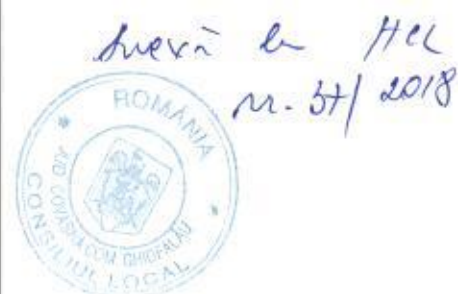 Anexă la HCL
nr. 37/2018
ROMÂNIA
* JUD COVASNA COM GHIDFALĂU *
CONSILIUL LOCAL